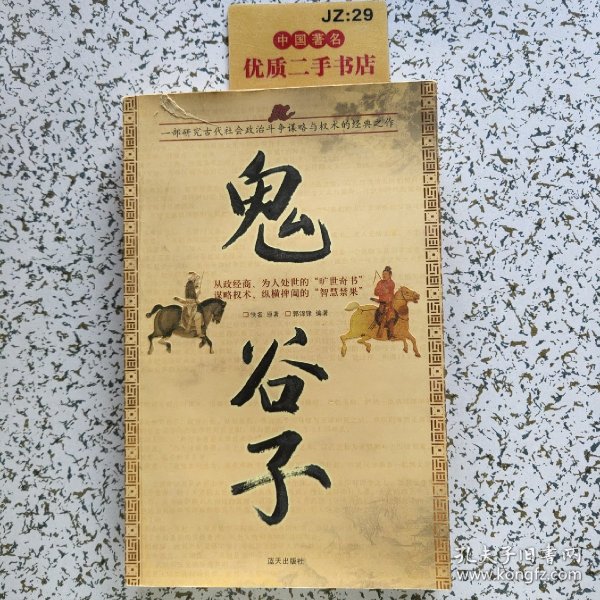 JZ:29
中国著名
优质二手书店
一部研究古代社会政治斗争谋略与权术的经典之作
鬼谷子
从政经商、为人处世的“旷世奇书”
谋略权术、纵横捭阖的“智慧禁果”
□佚名 原著 □郭锦锋 编著
蓝天出版社
孔夫子旧书网
kongfz.com